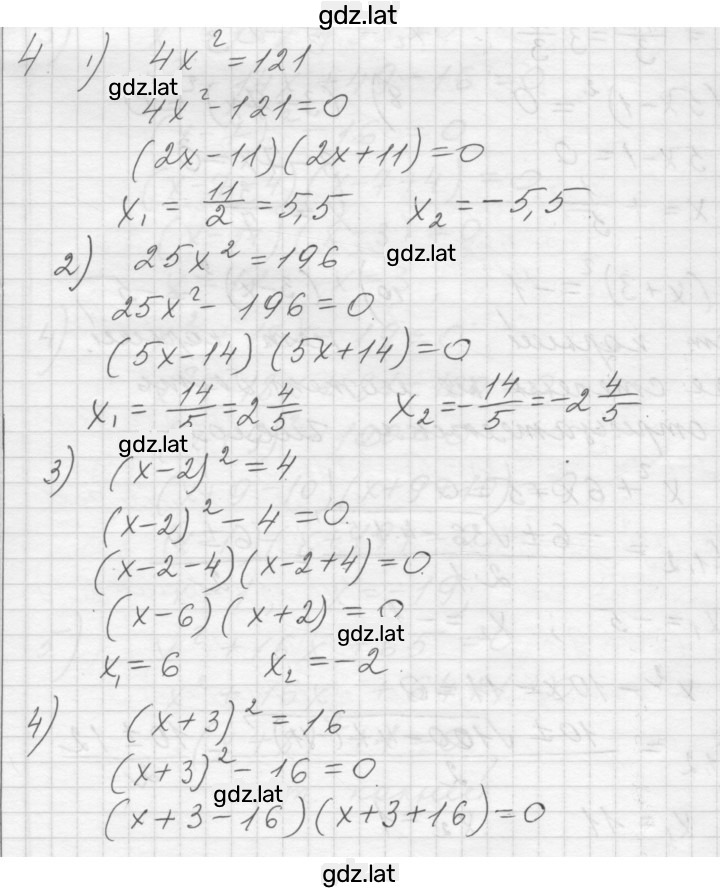 gdz.lat
4 1) 4x² = 121
gdz.lat
4x² - 121 = 0
(2x - 11)(2x + 11) = 0
x₁ = 11/2 = 5,5 x₂ = -5,5
2) 25x² = 196 gdz.lat
25x² - 196 = 0
(5x - 14)(5x + 14) = 0
x₁ = 14/5 = 2 4/5 x₂ = -14/5 = -2 4/5
gdz.lat
3) (x - 2)² = 4
(x - 2)² - 4 = 0
(x - 2 - 4)(x - 2 + 4) = 0
(x - 6)(x + 2) = 0
gdz.lat
x₁ = 6 x₂ = -2
4) (x + 3)² = 16
(x + 3)² - 16 = 0
gdz.lat
(x + 3 - 16)(x + 3 + 16) = 0
gdz.lat